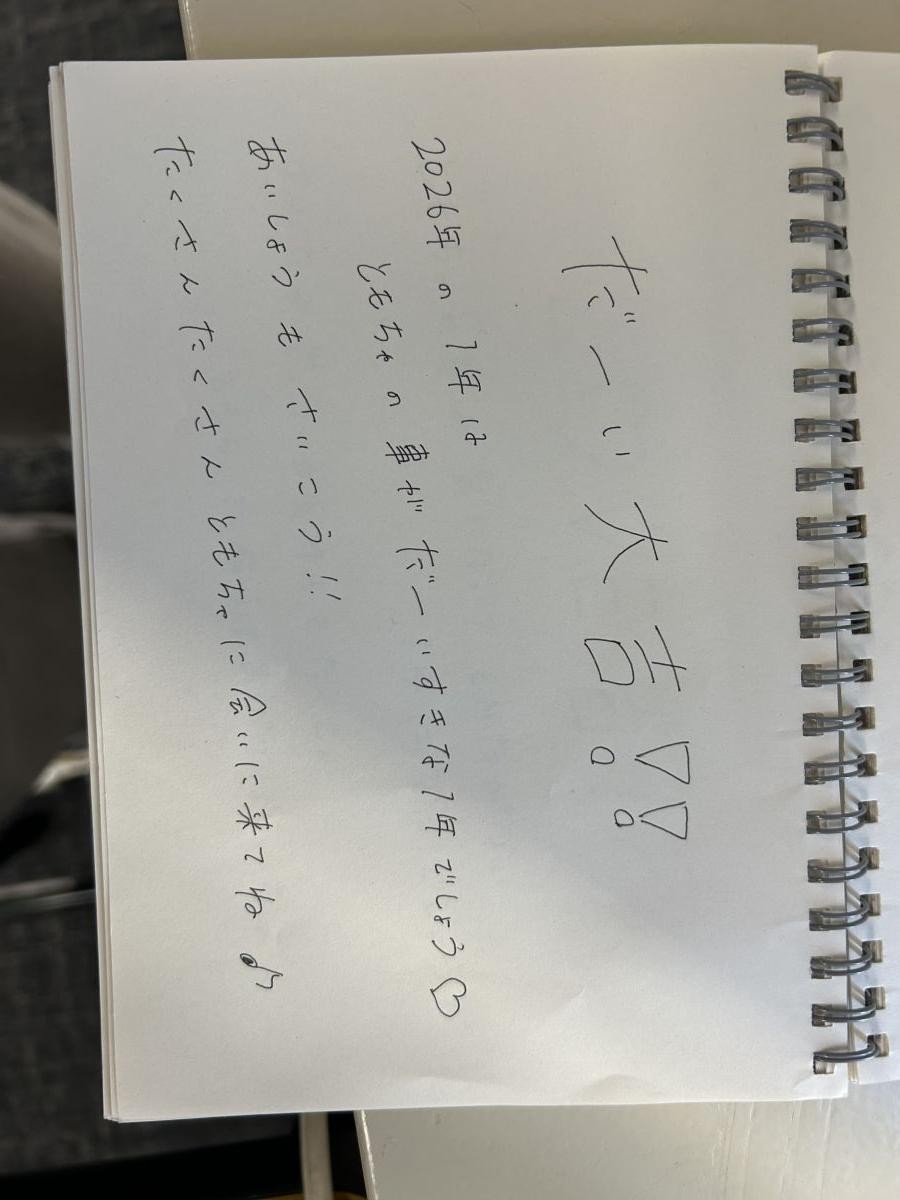 だーい大吉!!
2026年の1年は
ともちゃの事がだーいすきな1年でしょう♡
あいしょうもさいこう!!
たくさんたくさんともちゃに会いに来てね♪